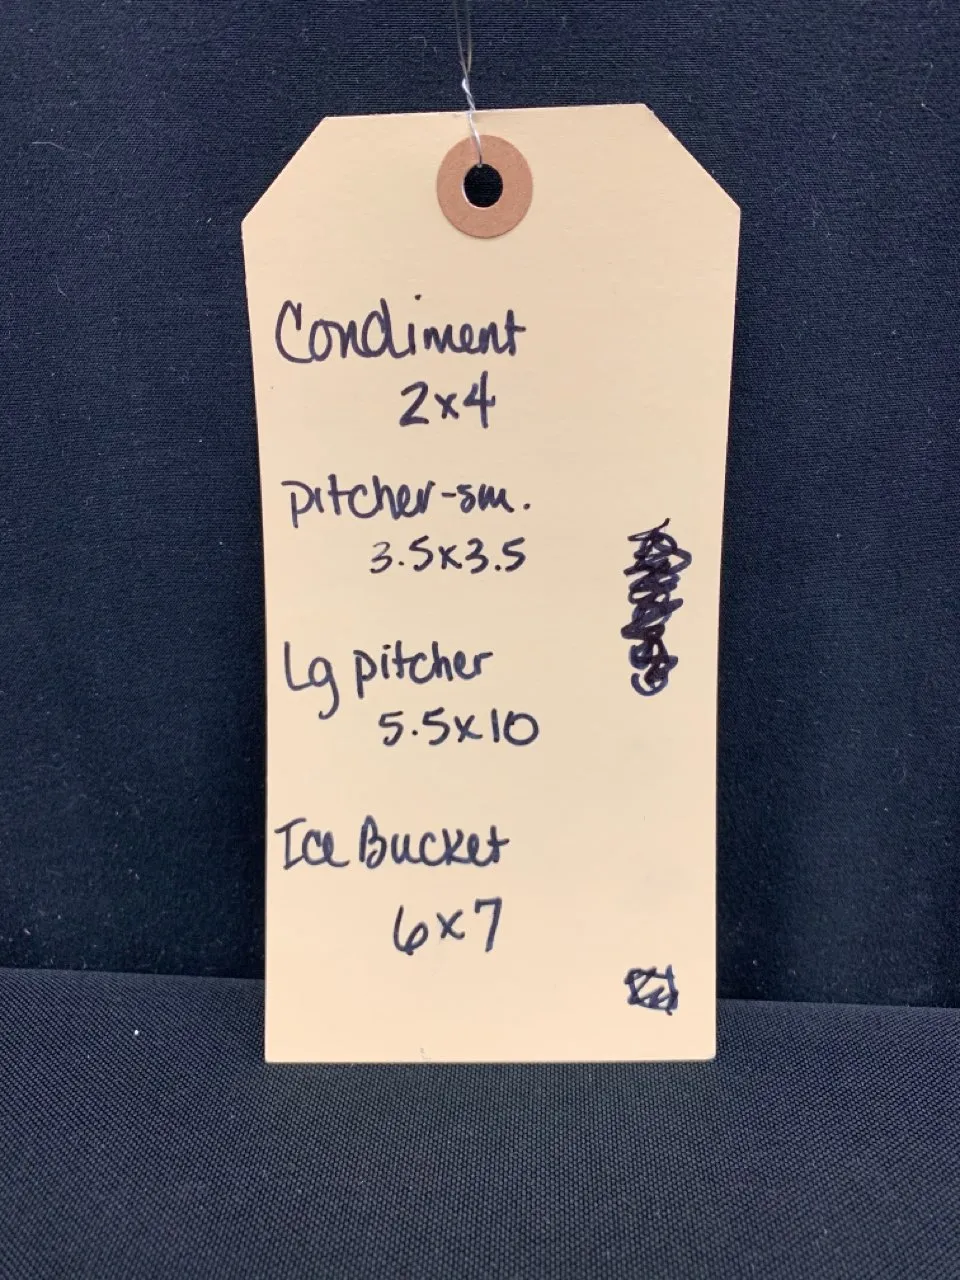 Condiment
2x4
pitcher-sm.
3.5x3.5
Lg pitcher
5.5x10
Ice Bucket
6x7